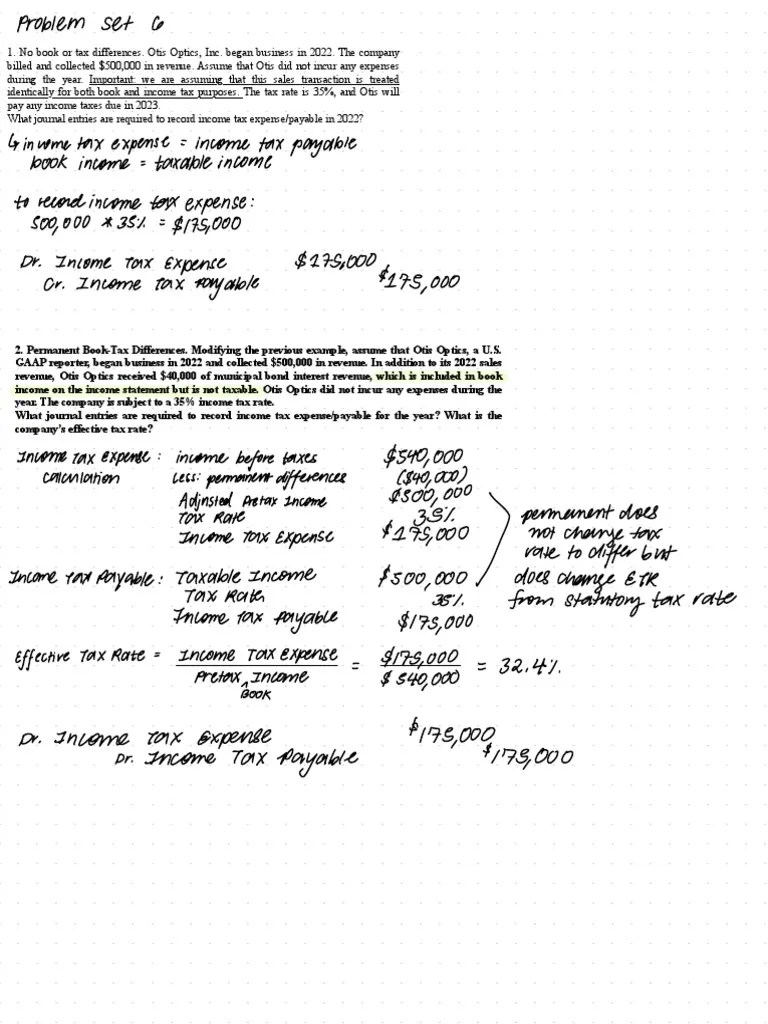 Problem Set 6
1. No book or tax differences. Otis Optics, Inc. began business in 2022. The company
billed and collected $500,000 in revenue. Assume that Otis did not incur any expenses
during the year. Important: we are assuming that this sales transaction is treated
identically for both book and income tax purposes. The tax rate is 35%, and Otis will
pay any income taxes due in 2023.
What journal entries are required to record income tax expense/payable in 2022?
↳ income tax expense = income tax payable
book income = taxable income
to record income tax expense:
500,000 * 35% = $175,000
Dr. Income Tax Expense $175,000
Cr. Income tax payable $175,000
2. Permanent Book-Tax Differences. Modifying the previous example, assume that Otis Optics, a U.S.
GAAP reporter, began business in 2022 and collected $500,000 in revenue. In addition to its 2022 sales
revenue, Otis Optics received $40,000 of municipal bond interest revenue, which is included in book
income on the income statement but is not taxable. Otis Optics did not incur any expenses during the
year. The company is subject to a 35% income tax rate.
What journal entries are required to record income tax expense/payable for the year? What is the
company's effective tax rate?
Income Tax Expense: income before taxes $540,000
calculation Less: permanent differences ($40,000)
Adjusted Pretax Income $500,000
Tax Rate 35%
Income Tax Expense $175,000
permanent does
not change tax
rate to differ but
does change ETR
from statutory tax rate
Income Tax Payable: Taxable Income $500,000
Tax Rate 35%
Income Tax Payable $175,000
Effective Tax Rate = Income Tax Expense = $175,000 = 32.4%
Pretax Book Income $540,000
Dr. Income Tax Expense $175,000
Dr. Income Tax Payable $175,000